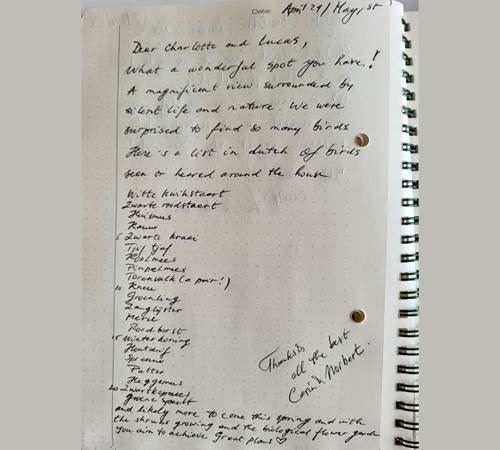 Data: April 29/May 1st
Dear Charlotte and Lucas,
What a wonderful spot you have!
A magnificent view surrounded by
silent life and nature. We were
surprised to find so many birds
Here's a list in dutch of birds
seen or heared around the house
Witte kwikstaart
Zwarte roodstaert
Huismus
Kauw
5 Zwarte kraai
Tjif tjaf
Koolmees
Pimpelmees
Torenvalk (a pair!)
10 Kneu
Groenling
Zanglijster
Merel
Roodborst
15 Winterkoning
Houtduif
Spreeuw
Putter
Heggemus
20 Zwartkop
groene specht
and likely more to come this spring and with
the shrubs growing and the biological flower garden
you aim to achieve Great plans ♡
Thanks &
all the best
Norbert.